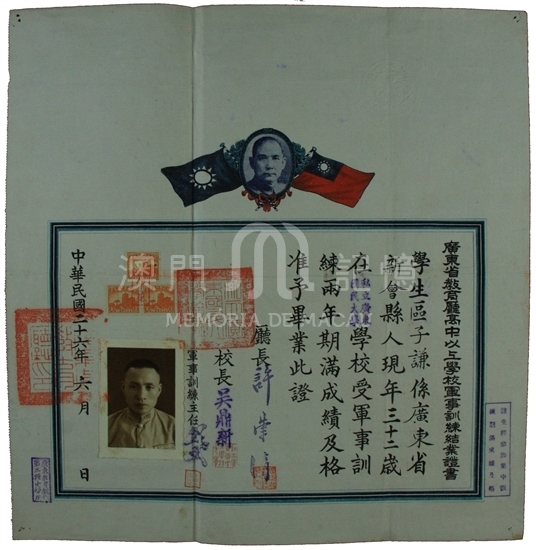 廣東省教育廳高中以上學校軍事訓練結業證書
學生區子謙係廣東省
新會縣人現年三十二歲
在私立廣東國民大學學校受軍事訓
練兩年期滿成績及格
准予畢業此證
廳長許崇清
校長吳鼎新
軍事訓練主任
中華民國二十六年六月 日
澳門記憶
MEMÓRIA DE MACAU